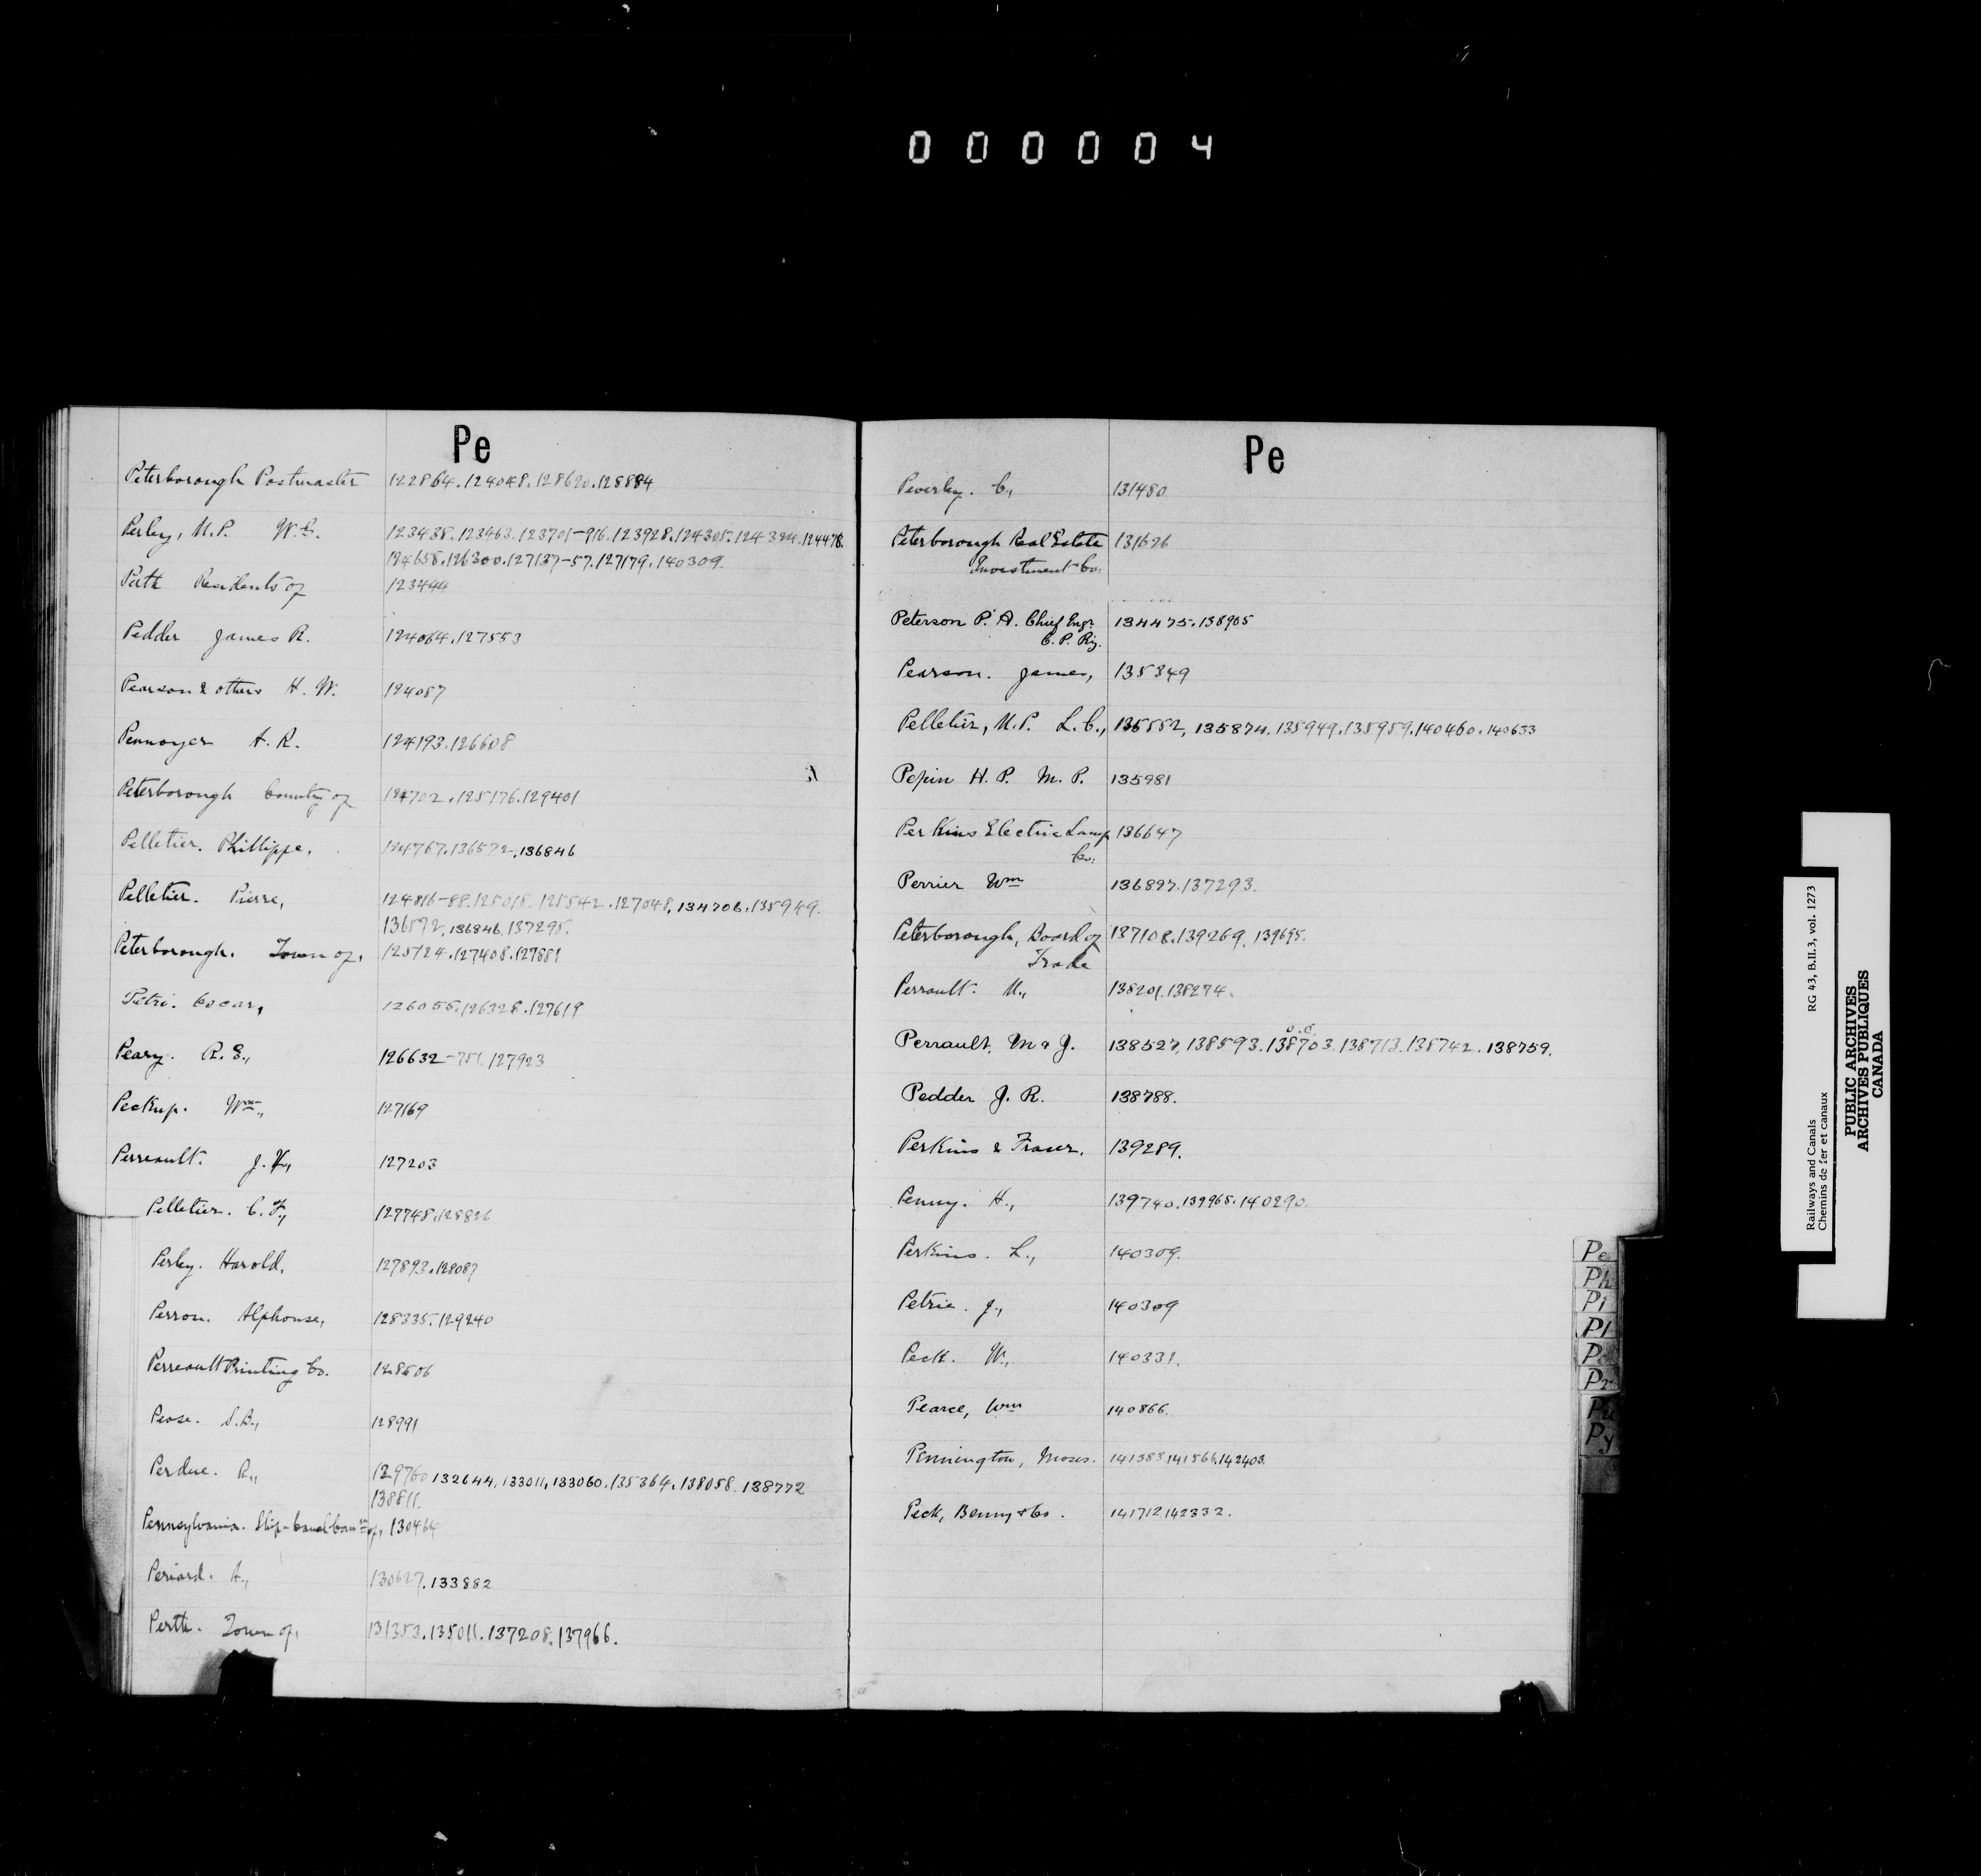 000004
Pe
Peterborough Postmaster 122864.124048.128620.128884
Perley, M.P. W.E. 123438.123463.123701-916.123928.124305.124334.124478.
124658.126300.127137-57.127179.140309.
Perth Residents of 123444
Pedder James R. 124064.127553
Pearson & others H. W. 124087
Pennoyer A. R. 124193.126608
Peterborough County of 124702.125176.129401
Pelletier. Phillippe, 124767.136572.136846
Pelletier. Pierre, 124816-88.125018.125542.127048.134706.135949.
136572.136846.137295.
Peterborough. Town of, 125724.127408.127881
Petri. Oscar, 126055.126328.127619
Peary. R.E., 126632-751.127923
Peckup. Wm., 127169
Perreault. J.X., 127203
Pelletier. C.F., 127748.128826
Perley. Harold. 127893.128087
Perron. Alphonse, 128335.129240
Perreault Printing Co. 128506
Pease. S.B., 128991
Perdue. R., 129760.132644.133011.133060.135364.138058.138772
138811.
Pennsylvania. Ship-Canal Comsn of, 130464
Periard. A., 130627.133882
Perth. Town of, 131353.135011.137208.137966.
Pe
Peverley. C., 131480
Peterborough Real Estate 131626
Investment Co:
Peterson P. A. Chief Engr. 134475.138905
C. P. Ry.
Pearson. James, 135349
Pelletier, M.P. L.C., 135552, 135874.135949.135959.140460.140633
Pepin H. P. M. P. 135981
Perkins Electric Lamp 136647
Co:
Perrier Wm 136897.137293.
Peterborough, Board of 137108.139269.139695.
Trade
Perrault. M., 138201.138274.
o.c.
Perrault, M & J. 138527.138593.138703.138713.138742.138759.
Pedder J. R. 138788.
Perkins & Fraser. 139289.
Penny. H., 139740.139965.140290.
Perkins. L., 140309.
Petrie. J., 140309
Peck. W., 140331.
Pearce, Wm 140866.
Pennington, Moses. 141383.141566.142403.
Peck, Benny & Co. 141712.142332.
Pe
Ph
Pi
Pl
Po
Pr
Pu
Py
Railways and Canals RG 43, B.II.3, vol. 1273
Chemins de fer et canaux
PUBLIC ARCHIVES
ARCHIVES PUBLIQUES
CANADA